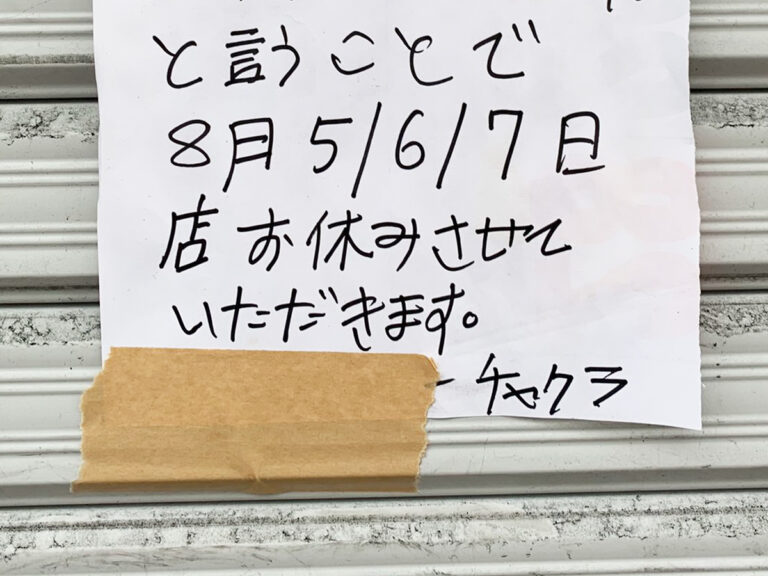 と言うことで
8月5/6/7日
店お休みさせて
いただきます。
チャクラ